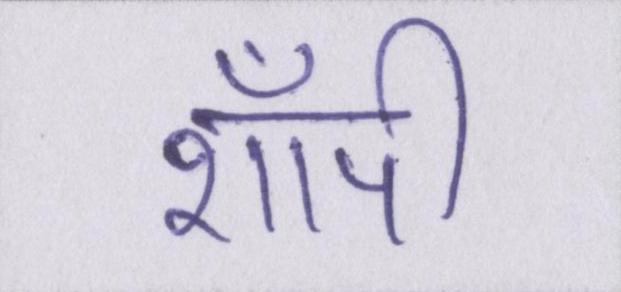 शाँपी